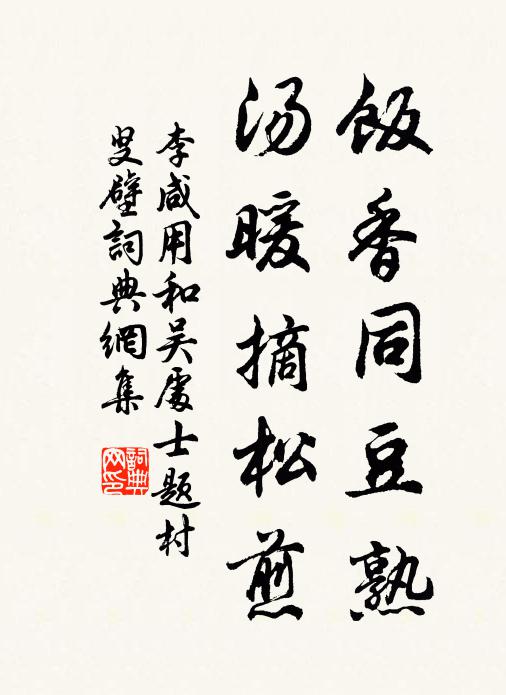 飯香同豆熟
汤暖摘松煎
李咸用和吴處士题村
叟壁詞典網集
詞典网印